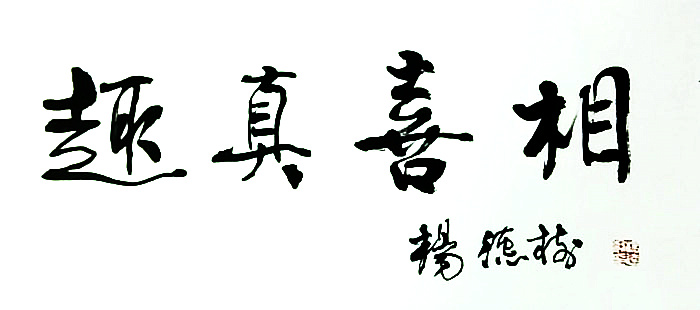 趣真喜相
楊德樹